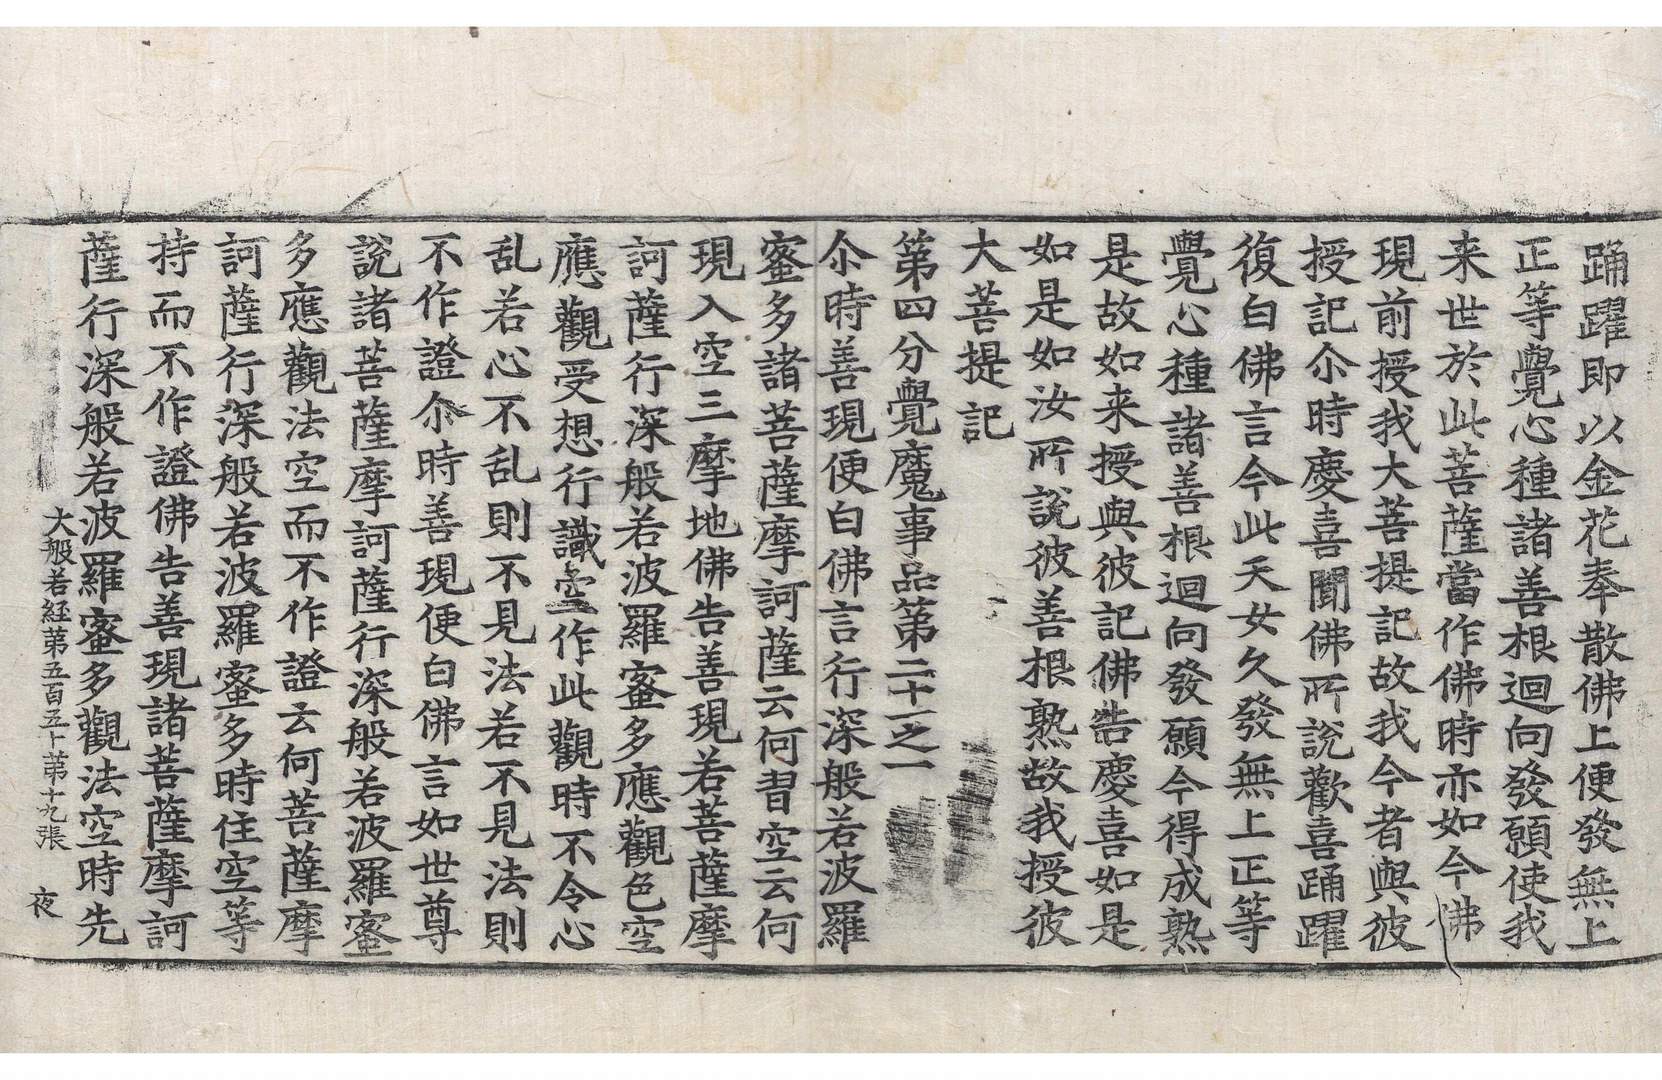 踊躍即以金花奉散佛上便發無上
正等覺心種諸善根迴向發願使我
来世於此菩薩當作佛時亦如今佛
現前授我大菩提記故我今者與彼
授記尒時慶喜聞佛所說歡喜踊躍
復白佛言今此天女久發無上正等
覺心種諸善根迴向發願今得成熟
是故如来授與彼記佛告慶喜如是
如是如汝所說彼善根熟故我授彼
大菩提記
第四分覺魔事品第二十一之一
尒時善現便白佛言行深般若波羅
蜜多諸菩薩摩訶薩云何習空云何
現入空三摩地佛告善現若菩薩摩
訶薩行深般若波羅蜜多應觀色空
應觀受想行識空作此觀時不令心
乱若心不乱則不見法若不見法則
不作證尒時善現便白佛言如世尊
說諸菩薩摩訶薩行深般若波羅蜜
多應觀法空而不作證云何菩薩摩
訶薩行深般若波羅蜜多時住空等
持而不作證佛告善現諸菩薩摩訶
薩行深般若波羅蜜多觀法空時先
大般若經第五百五十第十九張 夜